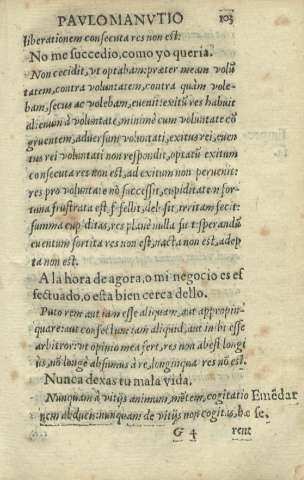 PAVLO MANVTIO 103
liberationem consecuta res non est.
No me succedio, como yo queria.
Non cecidit, vt optabam: præter meam volũ
tatem, contra voluntatem, contra quàm vole-
bam, secus ac volebam, euenit: exitũ res habuit
à voluntate, minimè cum voluntate cõ
gruentem, aduersum voluntati, exitus rei, euen
tus rei voluntati non respondit, optatũ exitum
consecuta res non est, ad exitum non peruenit:
res pro volũtate nõ successit, cupiditatem for
tuna frustrata est,
summa cupiditas, res planè nulla fuit: sperandũ
euentum sortita res non est, nacta non est, adep
ta non est.
A la hora de agora, o mi negocio es ef
fectuado, o esta bien cerca dello.
Puto rem aut iam esse aliquam, aut appropin-
quare: aut confectũ iam aliquid, aut in
arbitror: vt opinio mea fert, res non abest longi
ùs, nõ longè absumus à re, longinqua res nõ est.
Nunca dexas tu mala vida.
Nunquam à vitijs animum, mẽtem, cogitatio Emẽdar
nem abducis: nunquam de vitijs non cogitas, se.
G 4